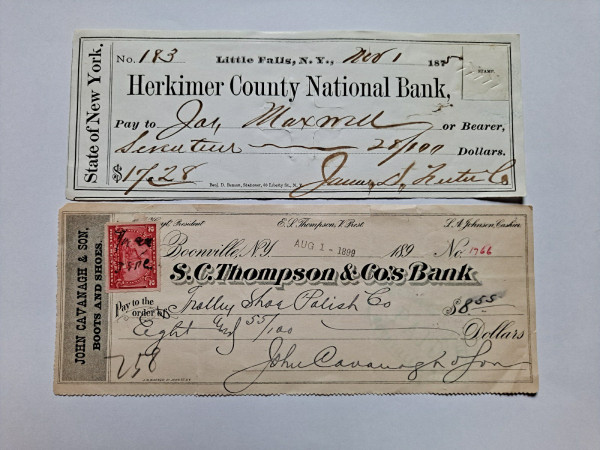 State of New York.
No. 183 Little Falls, N.Y., Nov 1 1875
STAMP.
Herkimer County National Bank,
Pay to Jas. Maxwell or Bearer,
Seventeen 28/100 Dollars.
$17.28
Benj. D. Benson, Stationer, 60 Liberty St., N.Y.
JOHN CAVANAGH & SON,
BOOTS AND SHOES.
President E.S. Thompson, V. Prest L.A. Johnson, Cashier
Boonville, N.Y. AUG 1 - 1899 189 No. 1766
S.C. Thompson & Co's Bank
Pay to the order of Trolley Shoe Polish Co $8.55
Eight and 55/100 Dollars
258 John Cavanagh & Son